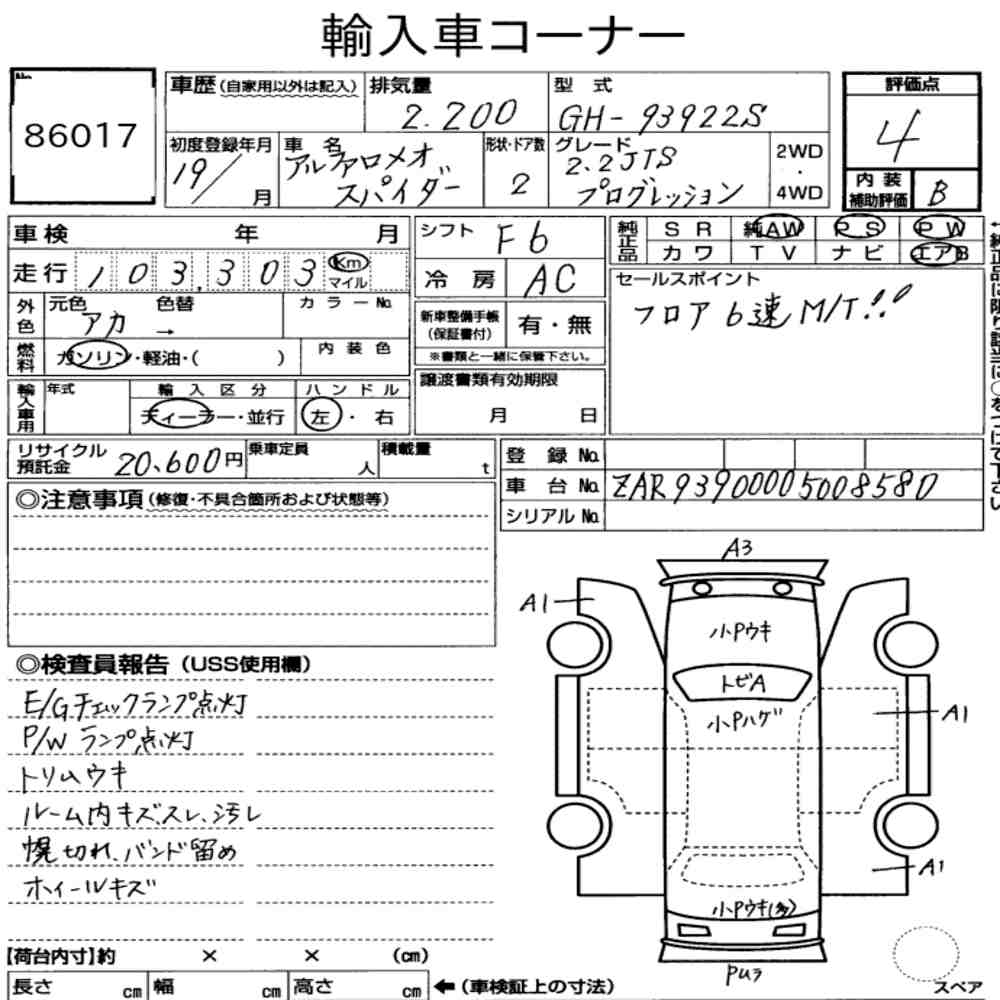 輸入車コーナー
No.
86017
車歴(自家用以外は記入)
排気量
2.200
型式
GH-93922S
評価点
4
初度登録年月
19/
月
車名
アルファロメオ
スパイダー
形状・ドア数
2
グレード
2.2JTS
プログレッション
2WD
・
4WD
内装
補助評価
B
車検 年 月
シフト
F6
純正品
SR 純AW PS PW
カワ TV ナビ エアB
走行 103,303 Km
マイル
冷房
AC
セールスポイント
フロア6速M/T!!
外色
元色 色替 カラーNo.
アカ →
新車整備手帳
(保証書付)
有・無
※書類と一緒に保管下さい。
燃料
ガソリン・軽油・( )
内装色
譲渡書類有効期限
月 日
輸入車用
年式
輸入区分
ディーラー・並行
ハンドル
左・右
リサイクル
預託金
20,600円
乗車定員
人
積載量
t
登録No.
車台No.
ZAR93900005008580
シリアルNo.
←純正品に限り該当に○をつけて下さい
◎注意事項(修復・不具合箇所および状態等)
◎検査員報告(USS使用欄)
E/Gチェックランプ点灯
P/Wランプ点灯
トリムウキ
ルーム内キズスレ、汚レ
幌切れ、バンド留め
ホイールキズ
A3
A1
小Pウキ
トビA
小Pハゲ
A1
A1
小Pウキ(多)
PUラ
スペア
【荷台内寸】約 × × (cm)
長さ cm 幅 cm 高さ cm ←(車検証上の寸法)